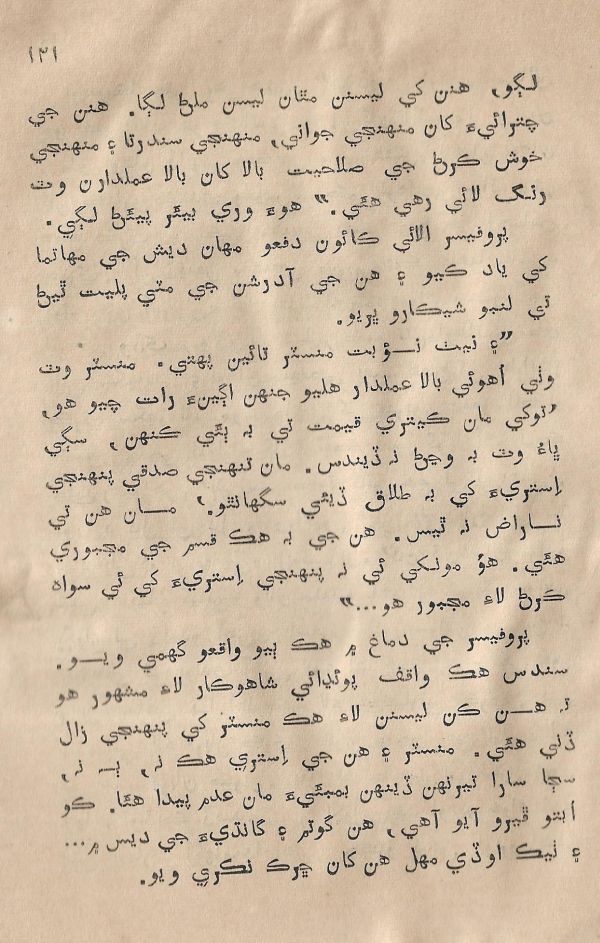 ١٢١
لڳو، هنن کي ليسنن مٿان ليسن ملڻ لڳا. هنن جي
چترائيءَ کان منهنجي جواني، منهنجي سندرتا ۽ منهنجي
خوش ڪرڻ جي صلاحيت بالا کان بالا عملدارن وٽ
رنگ لائي رهي هئي.” هوءَ وري بيئر پيئڻ لڳي.
پروفيسر الائي ڪائون دفعو مهان ديش جي مهاتما
کي ياد ڪيو ۽ هن جي آدرشن جي مٽي پليت ٿيڻ
تي لنبو شيڪارو ڀريو.
”۽ نيٺ نــوبت منسٽر تائين پهتي. منسٽر وٽ
وٺي اُهوئي بالا عملدار هليو جنهن اڳينءَ رات چيو هو،
’توکي مان ڪيتري قيمت تي به ٻئي ڪنهن، سڳي
ڀاءُ وٽ به وڃڻ نہ ڏيندس. مان تنهنجي صدقي پنهنجي
اِستريءَ کي به طلاق ڏيئي سگهانٿو.‘ مــان هن تي
نــاراض نہ ٿيس. هن جي به هڪ قسم جي مجبوري
هئي. هوُ مونکي ئي نہ پنهنجي اِستريءَ کي ئي سواه
ڪرڻ لاءِ مجبور هو...”
پروفيسر جي دماغ ۾ هڪ ٻيو واقعو گهمي ويــو.
سندس هڪ واقف پوئڍائي شاهوڪار لاءِ مشهور هو
تہ هــن ڪن ليسنن لاءِ هڪ منسٽر کي پنهنجي زال
ڏني هئي. منسٽر ۽ هن جي اِستري هڪ نہ، ٻــہ نہ،
سڄا سارا تيرنهن ڏينهن بمبئيءَ مان عدم پيدا هئا. ڪو
اُبتو ڦيرو آيو آهي، هن گوتم ۽ گانڌيءَ جي ديس ۾...
۽ ٺيڪ اوڏي مهل هن کان ڇرڪ نڪري ويو.